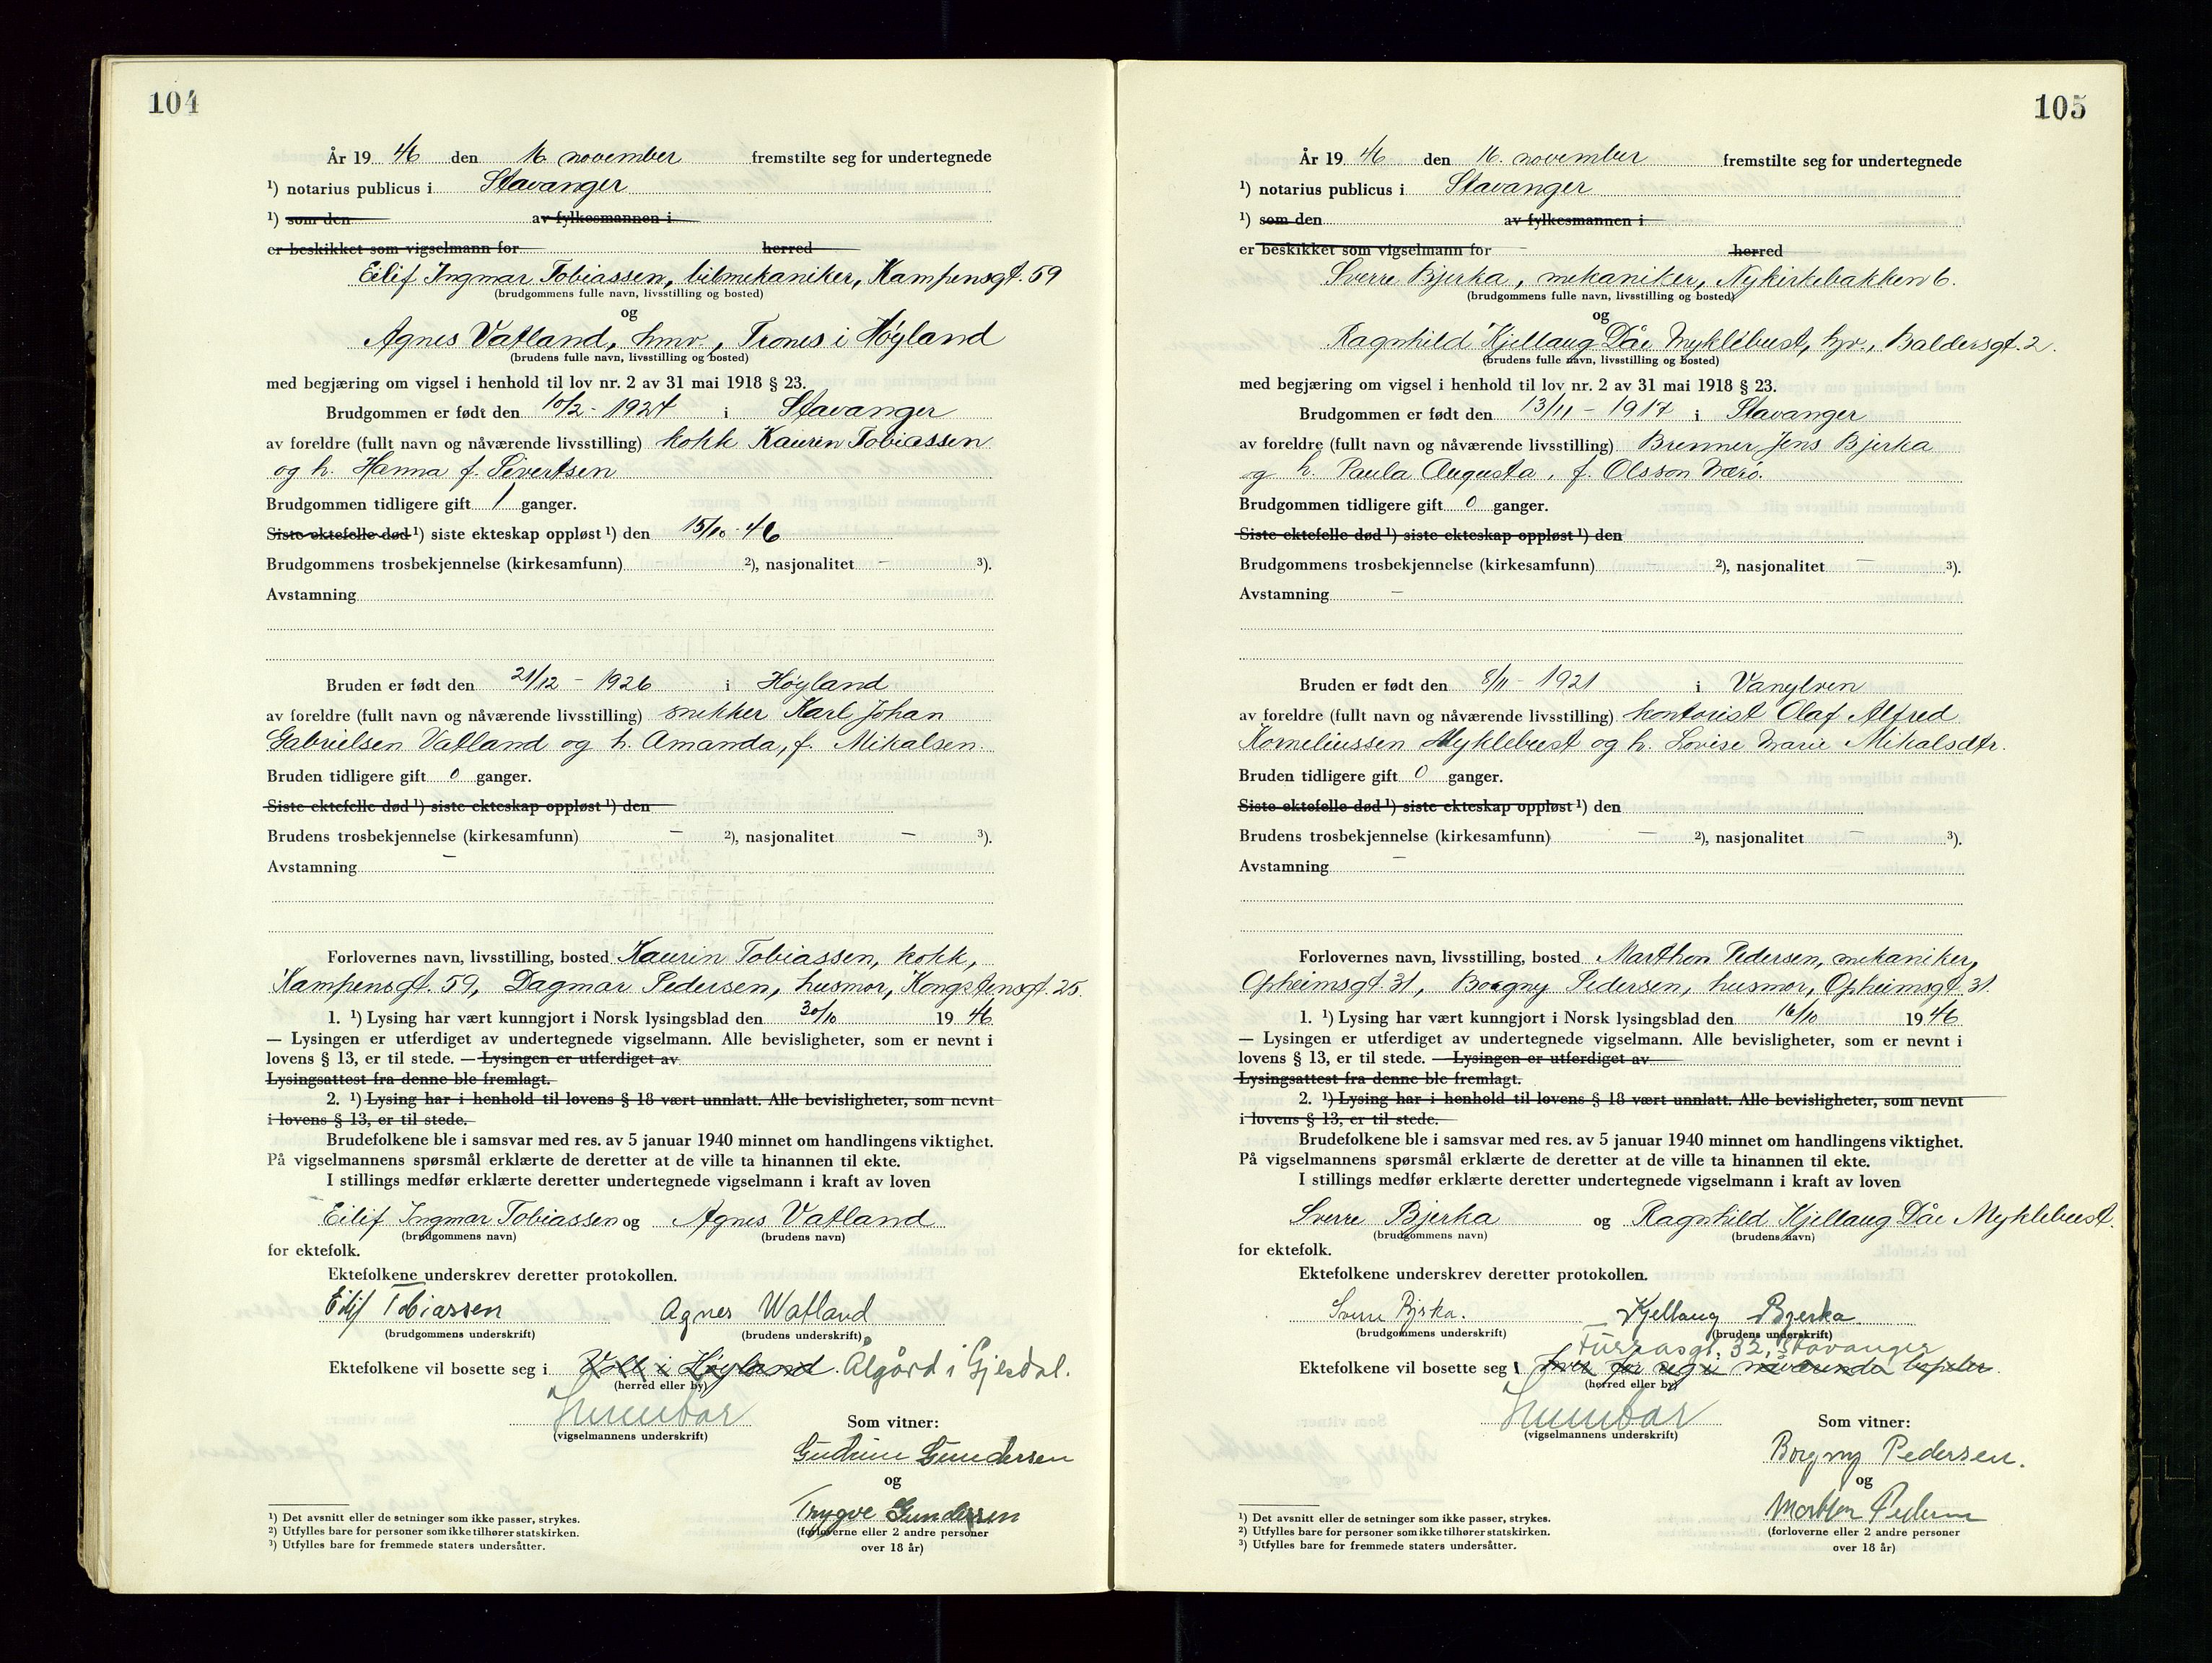 104
År 19 46 den 16. november fremstilte seg for undertegnede
¹) notarius publicus i Stavanger
¹) som den av fylkesmannen i
er beskikket som vigselmann for herred
Eilif Ingmar Tobiassen, bilmekaniker, Kampensgt. 59
(brudgommens fulle navn, livsstilling og bosted)
og
Agnes Vatland, hmv., Trones i Høyland
(brudens fulle navn, livsstilling og bosted)
med begjæring om vigsel i henhold til lov nr. 2 av 31 mai 1918 § 23.
Brudgommen er født den 10/2 - 1924 i Stavanger
av foreldre (fullt navn og nåværende livsstilling) kokk Kaurin Tobiassen
og h. Hanna f. Sivertsen
Brudgommen tidligere gift 1 ganger.
Siste ektefelle død ¹) siste ekteskap oppløst ¹) den 15/10 - 46
Brudgommens trosbekjennelse (kirkesamfunn) ²), nasjonalitet - ³).
Avstamning
Bruden er født den 21/12 - 1926 i Høyland
av foreldre (fullt navn og nåværende livsstilling) snekker Karl Johan
Gabrielsen Vatland og h. Amanda, f. Mikalsen.
Bruden tidligere gift 0 ganger.
Siste ektefelle død ¹) siste ekteskap oppløst ¹) den
Brudens trosbekjennelse (kirkesamfunn) - ²), nasjonalitet - ³).
Avstamning -
Forlovernes navn, livsstilling, bosted Kaurin Tobiassen, kokk,
Kampensgt. 59, Dagmar Pedersen, husmor, Kongstensgt. 25.
1. ¹) Lysing har vært kunngjort i Norsk lysingsblad den 30/10 19 46
— Lysingen er utferdiget av undertegnede vigselmann. Alle bevisligheter, som er nevnt i
lovens § 13, er til stede. — Lysingen er utferdiget av
Lysingsattest fra denne ble fremlagt.
2. ¹) Lysing har i henhold til lovens § 18 vært unnlatt. Alle bevisligheter, som nevnt
i lovens § 13, er til stede.
Brudefolkene ble i samsvar med res. av 5 januar 1940 minnet om handlingens viktighet.
På vigselmannens spørsmål erklærte de deretter at de ville ta hinannen til ekte.
I stillings medfør erklærte deretter undertegnede vigselmann i kraft av loven
Eilif Ingmar Tobiassen og Agnes Vatland
(brudgommens navn) (brudens navn)
for ektefolk.
Ektefolkene underskrev deretter protokollen.
Eilif Tobiassen Agnes Watland
(brudgommens underskrift) (brudens underskrift)
Ektefolkene vil bosette seg i Voll i Høyland. Ålgård i Gjesdal.
(herred eller by)
(vigselmannens underskrift)
Som vitner:
Gudrun Gundersen
og
Trygve Gundersen
(forloverne eller 2 andre personer
over 18 år)
¹) Det avsnitt eller de setninger som ikke passer, strykes.
²) Utfylles bare for personer som ikke tilhører statskirken.
³) Utfylles bare for fremmede staters undersåtter.
105
År 19 46 den 16. november fremstilte seg for undertegnede
¹) notarius publicus i Stavanger
¹) som den av fylkesmannen i
er beskikket som vigselmann for herred
Sverre Bjerka, mekaniker, Nykirkebakken 6.
(brudgommens fulle navn, livsstilling og bosted)
og
Ragnhild Kjellaug Dåe Myklebust, hpr., Baldersgt. 2.
(brudens fulle navn, livsstilling og bosted)
med begjæring om vigsel i henhold til lov nr. 2 av 31 mai 1918 § 23.
Brudgommen er født den 13/11 - 1917 i Stavanger
av foreldre (fullt navn og nåværende livsstilling) Brenner Jens Bjerka
og h. Paula Augusta, f. Olsson Værø.
Brudgommen tidligere gift 0 ganger.
Siste ektefelle død ¹) siste ekteskap oppløst ¹) den
Brudgommens trosbekjennelse (kirkesamfunn) - ²), nasjonalitet - ³).
Avstamning -
Bruden er født den 8/11 - 1921 i Vanylven
av foreldre (fullt navn og nåværende livsstilling) kontorist Olaf Alfred
Korneliussen Myklebust og h. Lovise Marie Mikalsdtr.
Bruden tidligere gift 0 ganger.
Siste ektefelle død ¹) siste ekteskap oppløst ¹) den
Brudens trosbekjennelse (kirkesamfunn) - ²), nasjonalitet - ³).
Avstamning -
Forlovernes navn, livsstilling, bosted Marthon Pedersen, mekaniker,
Opheimsgt. 31, Borgny Pedersen, husmor, Opheimsgt. 31.
1. ¹) Lysing har vært kunngjort i Norsk lysingsblad den 16/10 19 46
— Lysingen er utferdiget av undertegnede vigselmann. Alle bevisligheter, som er nevnt i
lovens § 13, er til stede. — Lysingen er utferdiget av
Lysingsattest fra denne ble fremlagt.
2. ¹) Lysing har i henhold til lovens § 18 vært unnlatt. Alle bevisligheter, som nevnt
i lovens § 13, er til stede.
Brudefolkene ble i samsvar med res. av 5 januar 1940 minnet om handlingens viktighet.
På vigselmannens spørsmål erklærte de deretter at de ville ta hinannen til ekte.
I stillings medfør erklærte deretter undertegnede vigselmann i kraft av loven
Sverre Bjerka og Ragnhild Kjellaug Dåe Myklebust.
(brudgommens navn) (brudens navn)
for ektefolk.
Ektefolkene underskrev deretter protokollen.
Sverre Bjerka. Kjellaug Bjerka
(brudgommens underskrift) (brudens underskrift)
32, Stavanger
Ektefolkene vil bosette seg i hver for seg i nåværende bopeler.
(herred eller by)
(vigselmannens underskrift)
Som vitner:
Borgny Pedersen.
og
Marthon Pedersen
(forloverne eller 2 andre personer
over 18 år)
¹) Det avsnitt eller de setninger som ikke passer, strykes.
²) Utfylles bare for personer som ikke tilhører statskirken.
³) Utfylles bare for fremmede staters undersåtter.